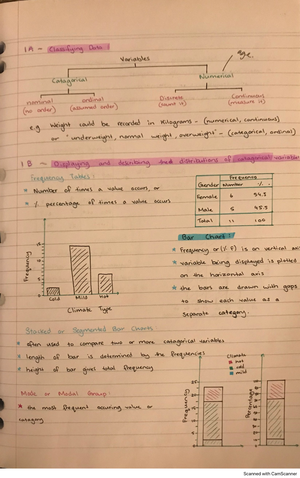 1A - Classifying Data:
Variables
age.
Catagorical
Numerical
nominal
(no order)
ordinal
(assumed order)
Discrete
(count it)
Continuous
(measure it)
e.g. Weight could be recorded in Kilograms - (numerical, continuous)
or "underweight, normal weight, overweight" - (categorical, ordinal)
1B - Displaying and describing the distributions of catagorical variables
Frequency Tables:
* Number of times a value occurs, or
* % percentage of times a value occurs
Frequency
Gender Number %
Female 6 54.5
Male 5 45.5
Total 11 100
Bar Chart:
* Frequency or (% F) is on vertical axis
* variable being displayed is plotted
on the horizontal axis
* the bars are drawn with gaps
to show each value is a
separate category.
Frequency
Cold Mild Hot
Climate Type
Stacked or Segmented Bar Charts
* often used to compare two or more catagorical variables
* length of bar is determined by the frequencies
* height of bar gives total frequency
Mode or Modal Group:
* the most frequent occuring value or
category
Climate
hot
cold
mild
Frequency
Percentage
Scanned with CamScanner